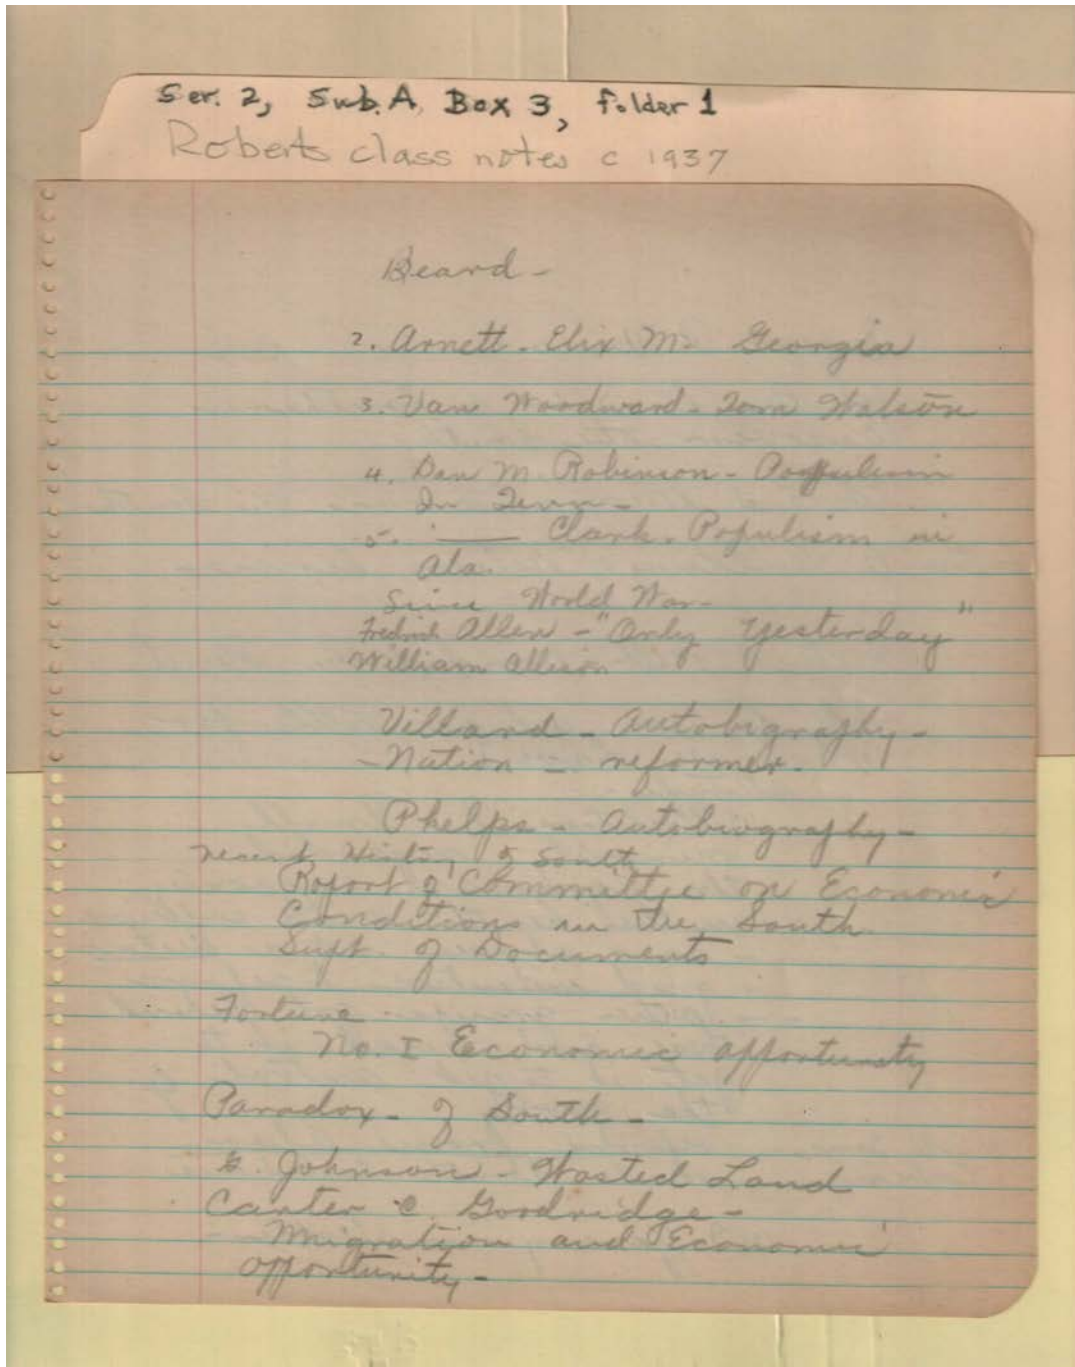 Ser. 2, Sub. A, Box 3, folder 1
Roberts class notes c 1937
Beard -
2. Arnett - M. Georgia
3. Van Woodward - Tom Watson
4. Dan M. Robinson - Populism
In Tenn -
5. —— Clark - Populism in
Ala.
Since World War -
Fredrick Allen - "Only Yesterday"
William Allison
Villard - Autobigraphy -
- Nation - reformer -
Phelps - Autobiography -
History of South
Report of Committee on Economic
Conditions in the South
Supt. of Documents
Fortune
No. I Economic opportunity
Paradox - of South -
G. Johnson - Wasted Land
Carter Goodridge -
Migration and Economic
opportunity -